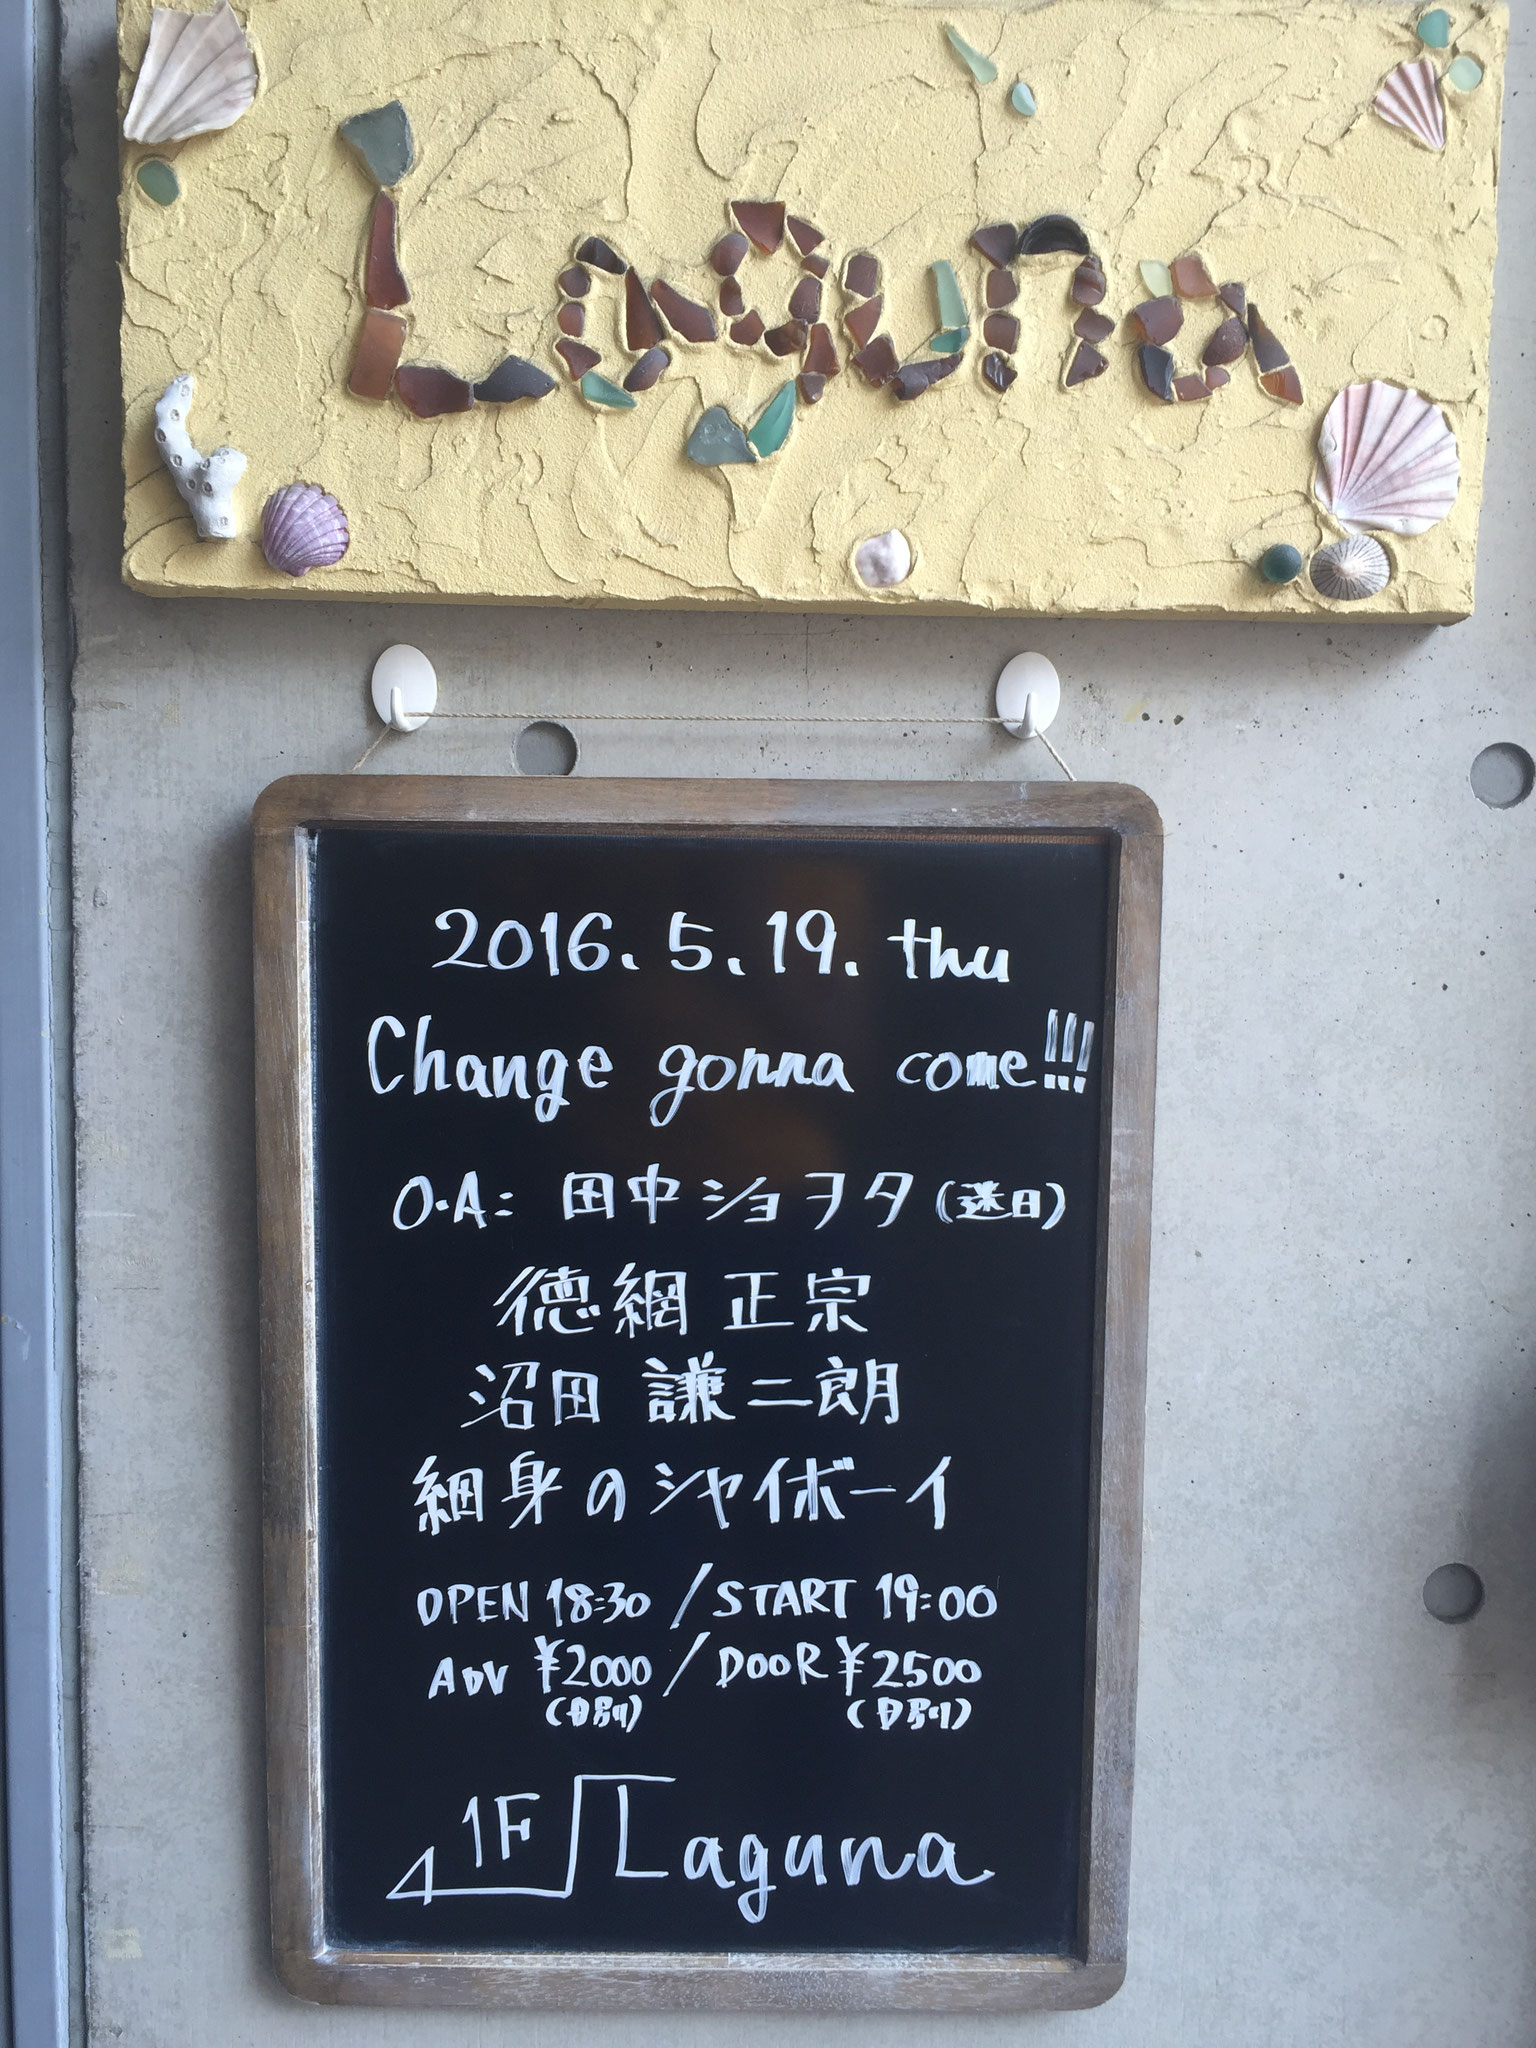 Laguna
2016.5.19.thu
Change gonna come!!!
O.A: 田中ショヲタ(迷日)
徳網 正宗
沼田 謙二朗
細身のシャイボーイ
OPEN 18:30 / START 19:00
ADV ¥2000 / DOOR ¥2500
(D別) (D別)
1F Laguna